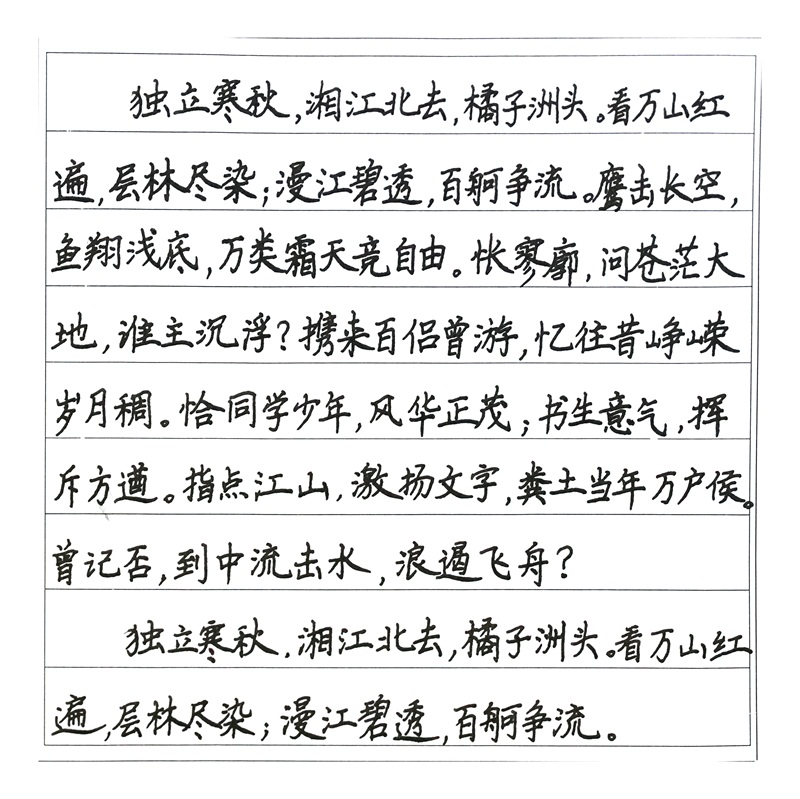 独立寒秋,湘江北去,橘子洲头。看万山红
遍,层林尽染;漫江碧透,百舸争流。鹰击长空,
鱼翔浅底,万类霜天竞自由。怅寥廓,问苍茫大
地,谁主沉浮?携来百侣曾游,忆往昔峥嵘
岁月稠。恰同学少年,风华正茂;书生意气,挥
斥方遒。指点江山,激扬文字,粪土当年万户侯。
曾记否,到中流击水,浪遏飞舟?
独立寒秋,湘江北去,橘子洲头。看万山红
遍,层林尽染;漫江碧透,百舸争流。